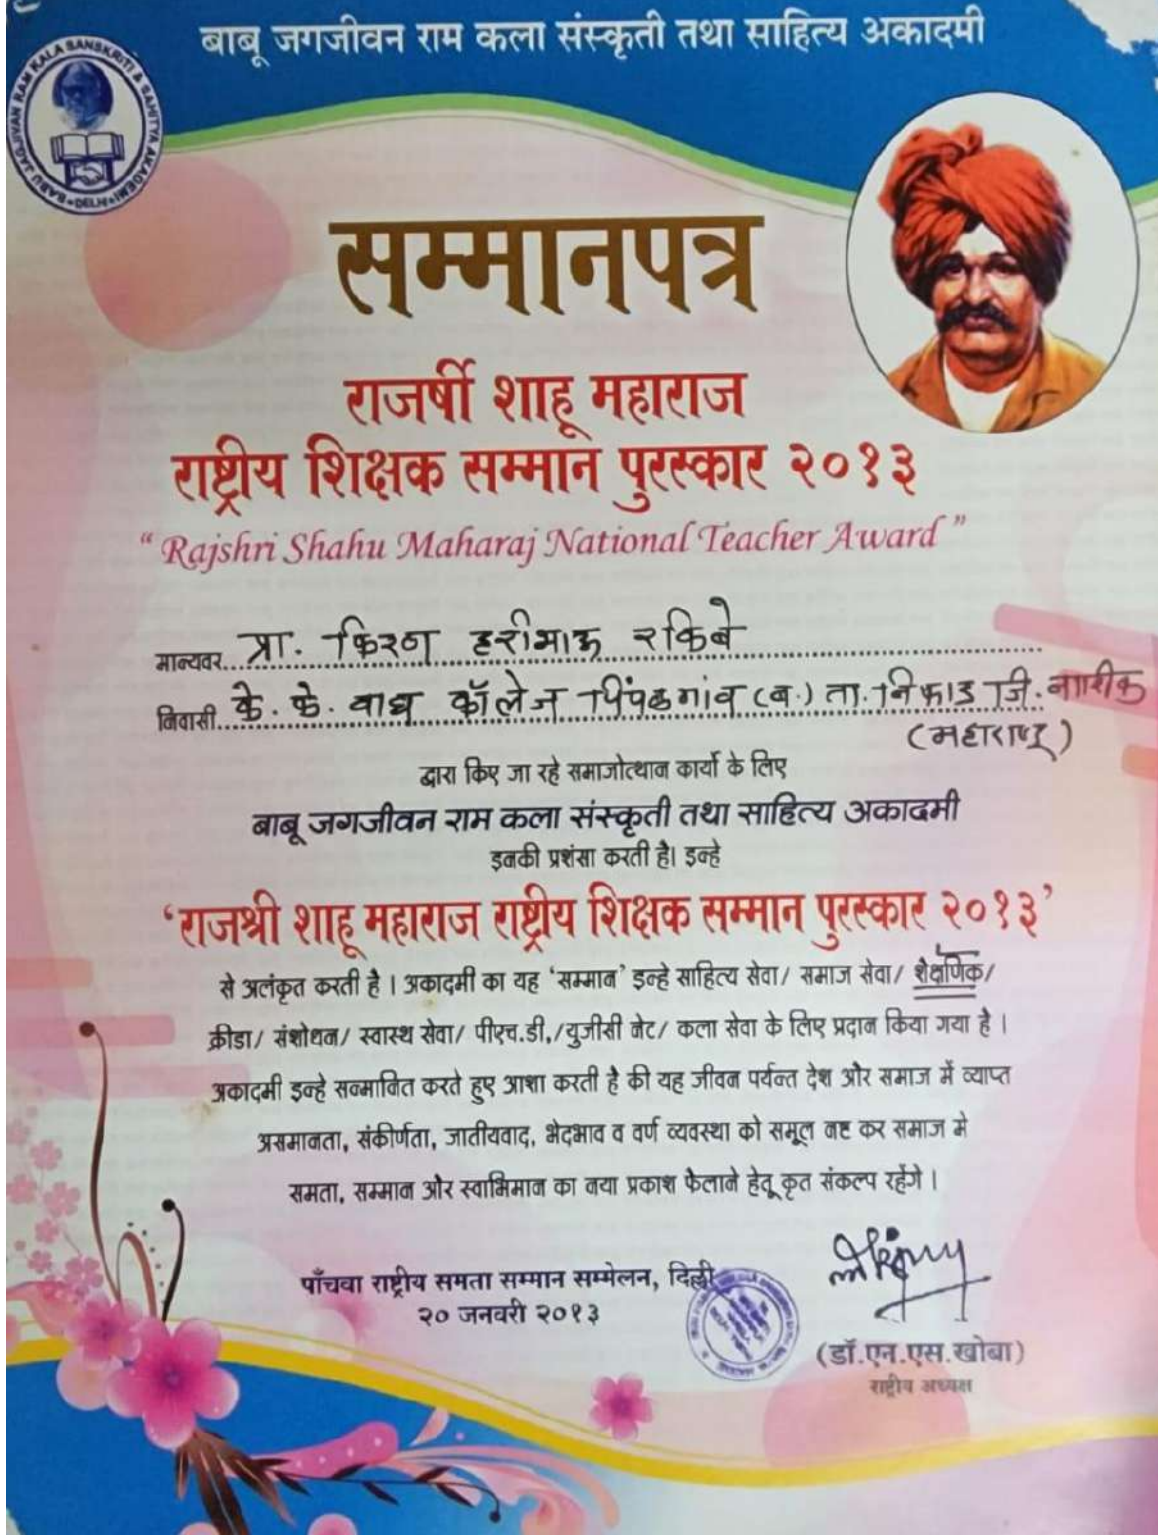 बाबू जगजीवन राम कला संस्कृती तथा साहित्य अकादमी
BABU JAGJIVAN RAM KALA SANSKRITI & SAHITYA AKADEMI
DELHI
सम्मानपत्र
राजर्षी शाहू महाराज
राष्ट्रीय शिक्षक सम्मान पुरस्कार २०१३
“ Rajshri Shahu Maharaj National Teacher Award ”
मान्यवर.. प्रा. किरण हरीभाऊ रकिबे
निवासी.. के. के. वाघ कॉलेज पिंपळगांव (ब.) ता. निफाड जि. नाशीक
(महाराष्ट्र)
द्वारा किए जा रहे समाजोत्थान कार्यो के लिए
बाबू जगजीवन राम कला संस्कृती तथा साहित्य अकादमी
इनकी प्रशंसा करती है। इन्हे
‘राजश्री शाहू महाराज राष्ट्रीय शिक्षक सम्मान पुरस्कार २०१३’
से अलंकृत करती है । अकादमी का यह ‘सम्मान’ इन्हे साहित्य सेवा/ समाज सेवा/ शैक्षणिक/
क्रीडा/ संशोधन/ स्वास्थ सेवा/ पीएच.डी./युजीसी नेट/ कला सेवा के लिए प्रदान किया गया है ।
अकादमी इन्हे सन्मानित करते हुए आशा करती है की यह जीवन पर्यन्त देश और समाज में व्याप्त
असमानता, संकीर्णता, जातीयवाद, भेदभाव व वर्ण व्यवस्था को समूल नष्ट कर समाज मे
समता, सम्मान और स्वाभिमान का नया प्रकाश फैलाने हेतू कृत संकल्प रहेंगे ।
पाँचवा राष्ट्रीय समता सम्मान सम्मेलन, दिल्ली
२० जनवरी २०१३
(डॉ.एन.एस.खोबा)
राष्ट्रीय अध्यक्ष